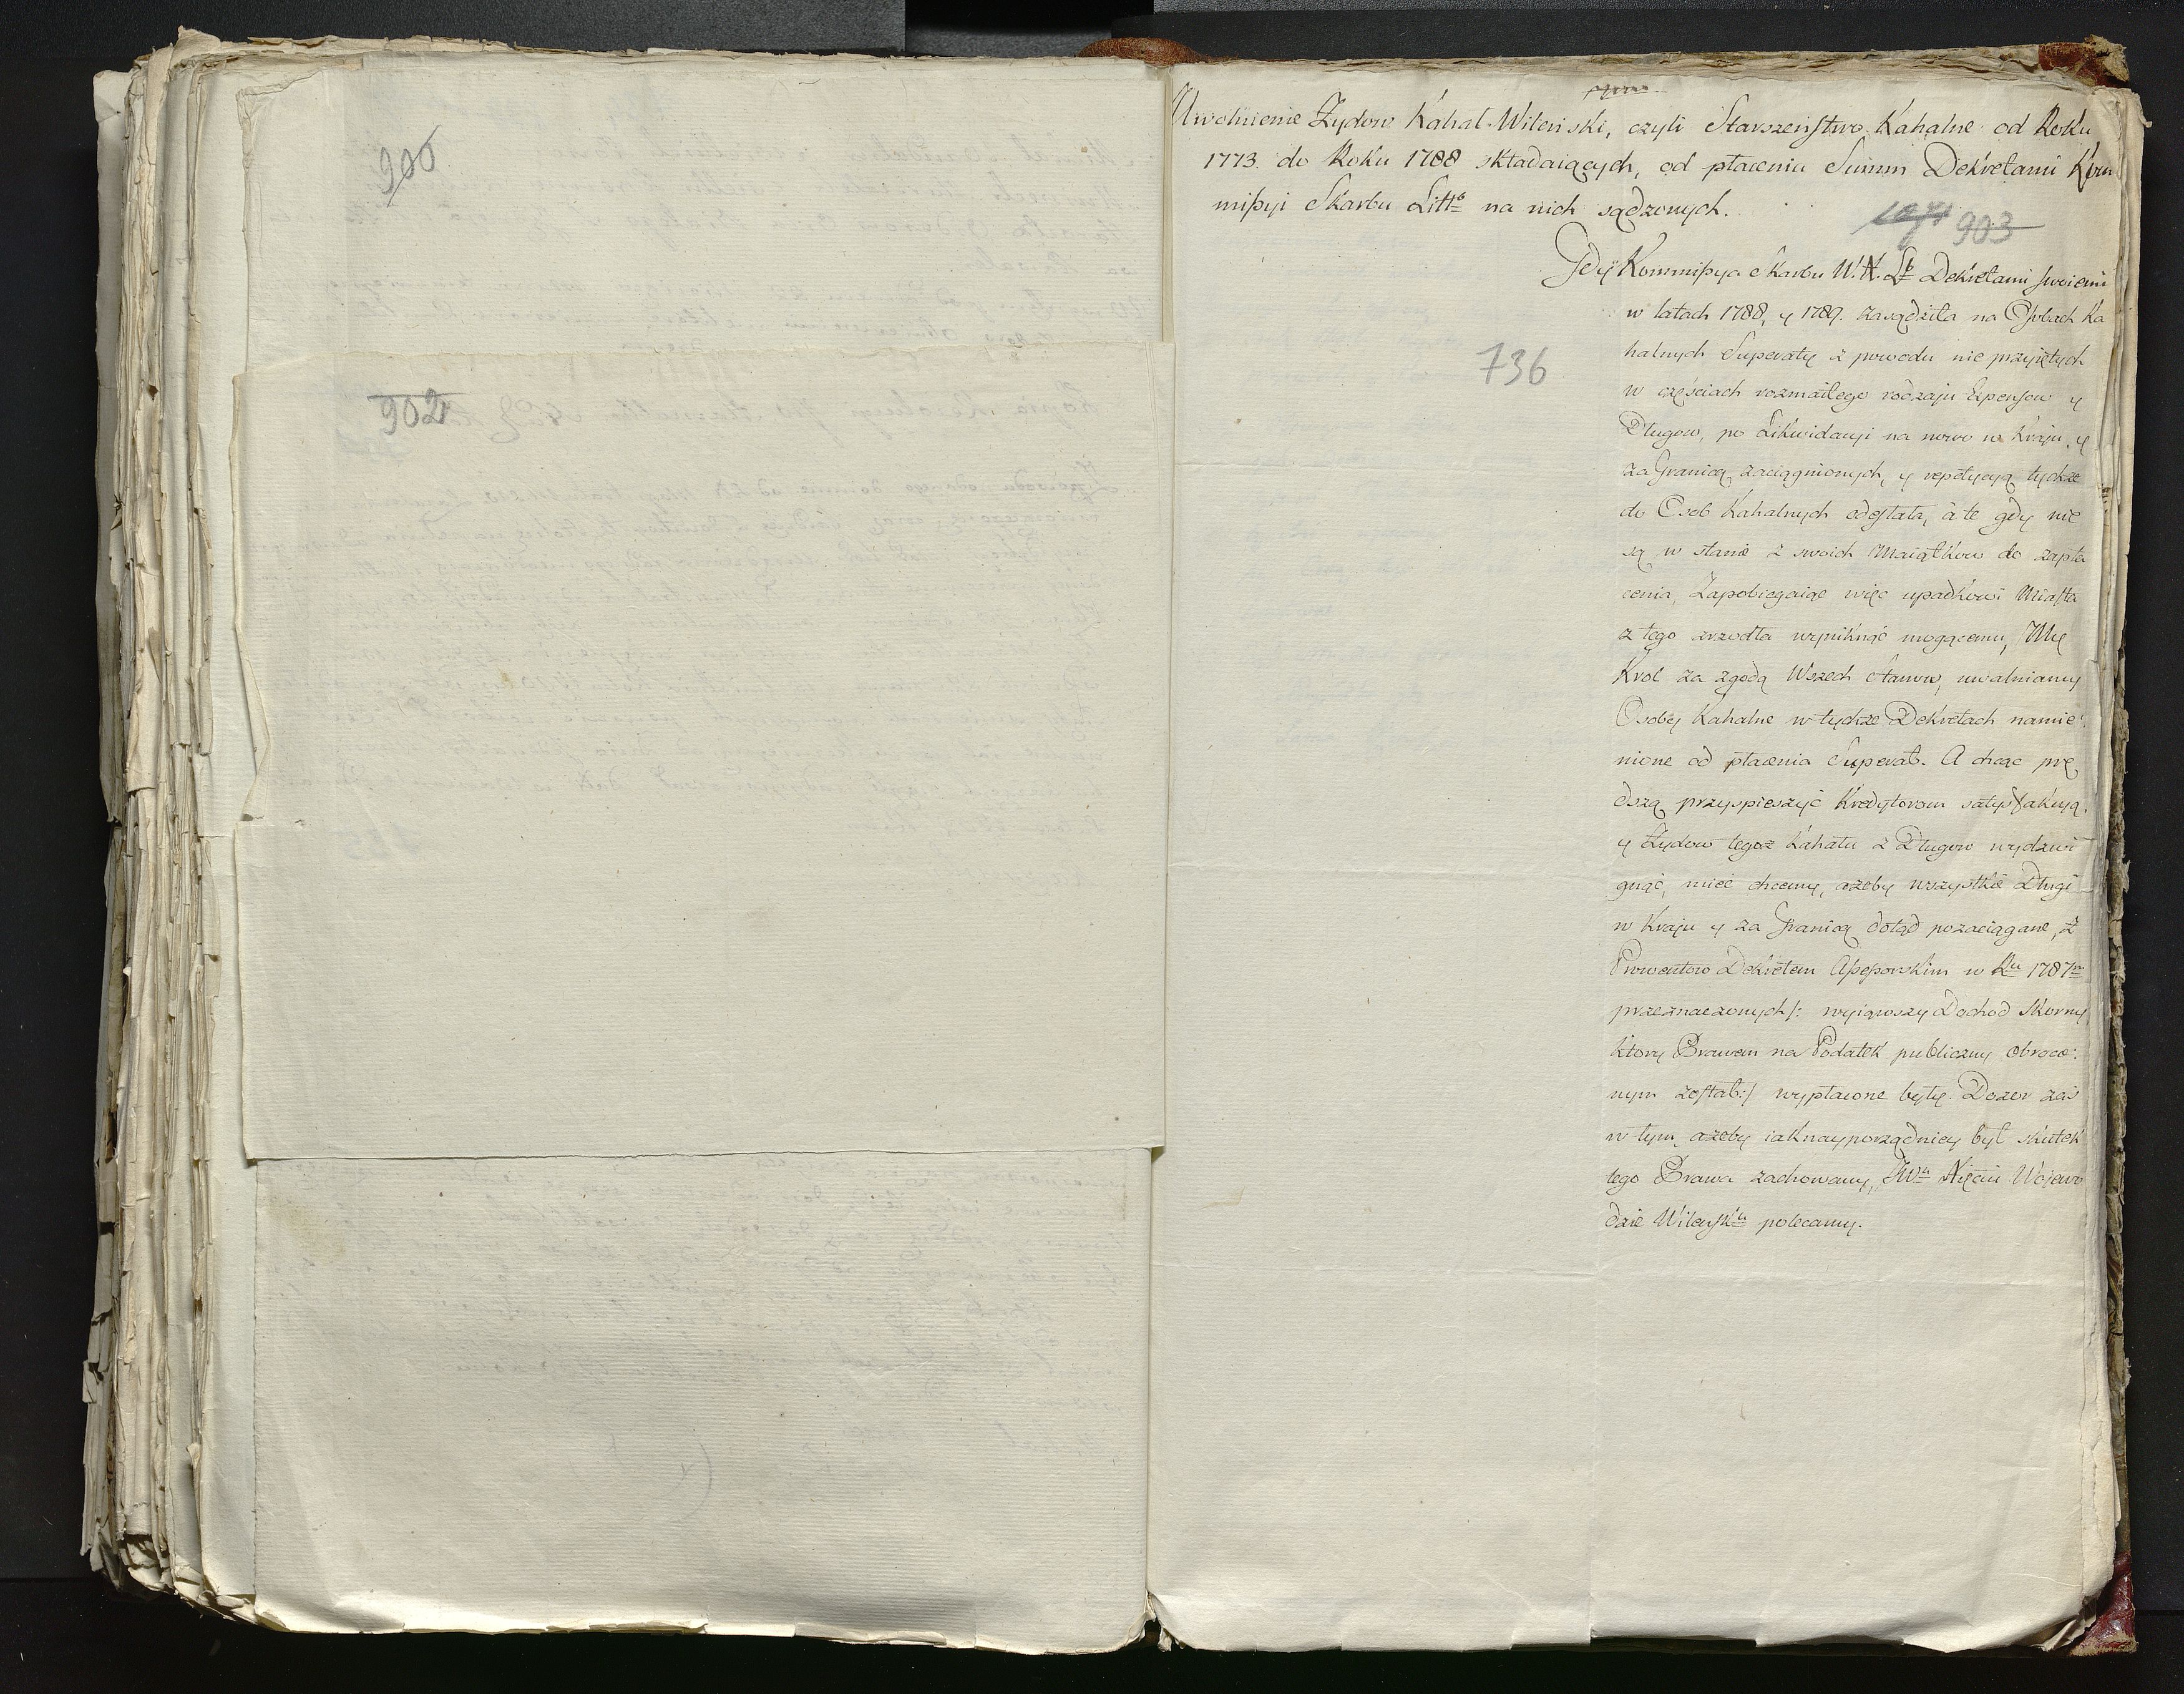 900
902
Uwolnienie Żydow Kahał Wileński, czyli Starszeństwo Kahalne od Roku
1773 do Roku 1788 składaiących, od płaceniu Summ Dekretami Kom
missyi Skarbu Litt&#x20;na nich sądzonych.
903
736
Gdy Kommissya Skarbu W. X. Lo Dekretami swoiemi
w latach 1788, y 1789. zasądziła na Osobach Ka
halnych Superaty z powodu nie przyiętych
w częściach rozmaitego rodzaju Expensow y
Długow, po Likwidacyi na nowo w Kraju, y
za Granicą zaciągnionych, y repetycyą tychże
do Osob Kahalnych odesłała, a te gdy nie
są w stanie z swoich Maiątkow do zapła
cenia, Zapobiegaiąc więc upadkowi Miasta
z tego zrzodła wyniknąć mogącemu, My
Krol za zgodą Wszech Stanow, uwalniamy
Osoby Kahalne w tychże Dekretach namie:
nione od płacenia Superat. A chcąc prę
dszą przyspieszyć Kredytorom satysfakcyą,
y Żydow tegoz Kahału z Długow wydzwi
gnąć, mieć chcemy, azeby wszystkie Długi
w Kraju y za Granicą dotąd pozaciągane, z
Prowentow Dekretem Assessorskim w Rku 1787m
przeznaczonych/: wyiąwszy Dochod Skorny
ktory Prawem na Podatek publiczny obroco:
nym został:/ wypłacone były. Dozor zaś
w tym, ażeby iak nayporządniey był skutek
tego Prawa zachowany, JWu Xięciu Wojewo
dzie Wileńsku polecamy.